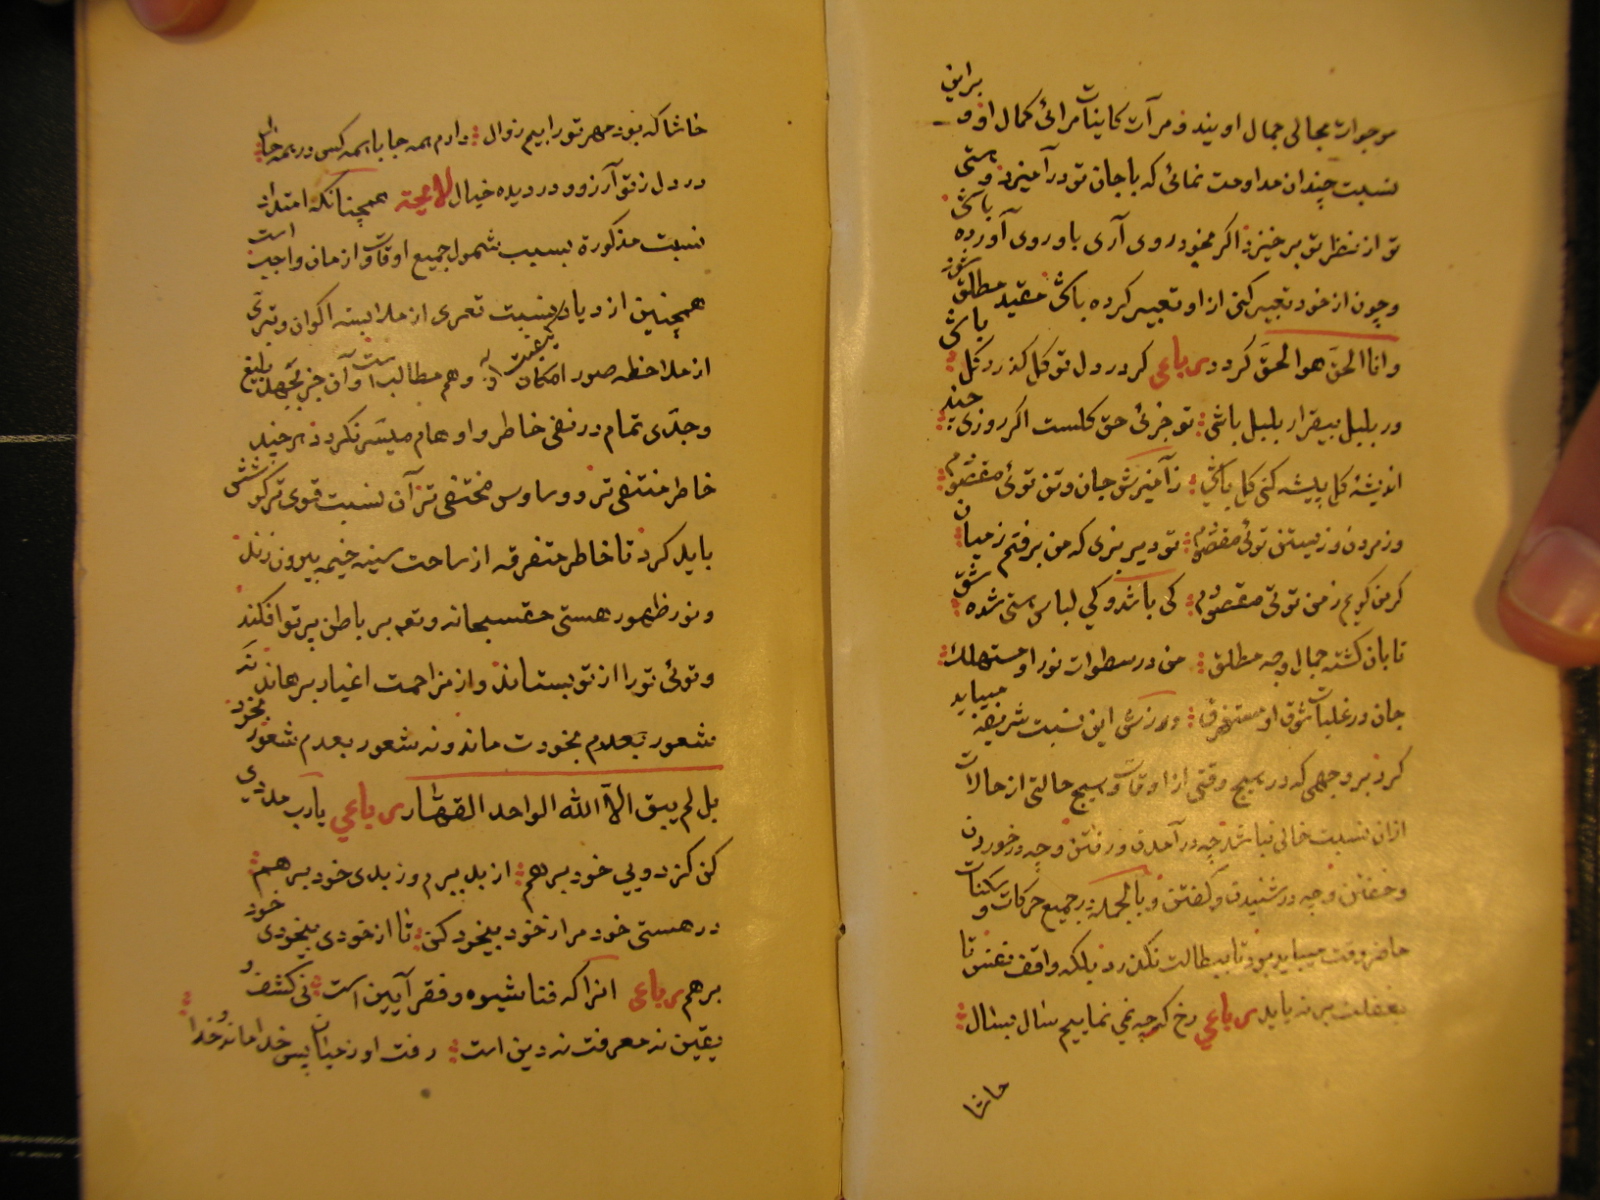 موجودات مجالی جمال اویند و مرآت کاینات مرائی کمال او و براین
نسبت چندان مداومت نمائی که با جان تو در آمیزد و هستی
تو از نظر تو بر خیزد اگر بخود روی آری باو روی آورده باشی
و چون از خود تعبیر کنی از او تعبیر کرده باشی مقید مطلق شود
و انا الحق هو الحق کردد رباعی کر در دل تو کل کذرد کل باشی
ور بلبل بیقرار بلبل باشی تو جزئی حق کلست اکر روزی چند
اندیشه کل پیشه کنی کل باشی زآمیزش جان و تن توئی مقصودم
وز مردن و زیستن توئی مقصودم تو دیر بزی که من برفتم زمیان
کر من کویم زمن توئی مقصودم کی باشد و کی لباس هستی شده شق
تابان کشته جمال وجه مطلق من در سطوات نور او مستهلک
جان در غلبات شوق او مستغرق ورزش این نسبت شریفه میباید
کرد بر وجهی که در هیچ وقتی از اوقات و هیچ حالتی از حالات
ازان نسبت خالی نباشد چه در آمدن و رفتن و چه در خوردن
و خفتن و چه در شنیدن و کفتن و بالجمله در جمیع حرکات و سکنات
حاضر وقت میباید بود تا ببطالت نکذرد بلکه واقف نفس تا
بغفلت بر نیاید رباعی رخ کرچه نمی نماییم سال بسال
حاشا
حاشا که بود مهر تو را بیم زوال دارم همه جا با همه کس در همه حال
در دل زتو آرزو و در دیده خیال لایحه همچنانکه امتداد
نسبت مذکورة بسبب شمول جمیع اوقات و ازمان واجب است
همچنین ازدیاد کیفیت نسبت تعری از ملابسه اکوان و تبری
از ملاحظه صور امکان وهم مطالب است و آن جز بجهد بلیغ
و جدی تمام در نفی خاطر و اوهام میسر نکردد هر چند
خاطر منتفی تر و وساوس مختفی تر آن نسبت قوی تر کوشش
باید کرد تا خاطر متفرقه از ساحت سینه خیمه بیرون زند
و نور ظهور هستی حق سبحانه و تعه بر باطن پرتو افکند
و توئی تو را از تو بستاند و از مزاحمت اغیار برهاند نه
شعور بعدم بخودت ماند و نه شعور بعدم شعور بخود
بل لم یبق الا الله الواحد القهار رباعی یارب مددی
کن کز دویی خود برهم از بد ببرم وز بدی خود برهم
در هستی خود مرا ز خود بیخود کن تا از خودی بیخودی خود
برهم رباعی انرا که فنا شیوه و فقر آیین است نی کشف و
یقین نه معرفت نه دین است رفت او زمیان پس خدا ماند و خدا